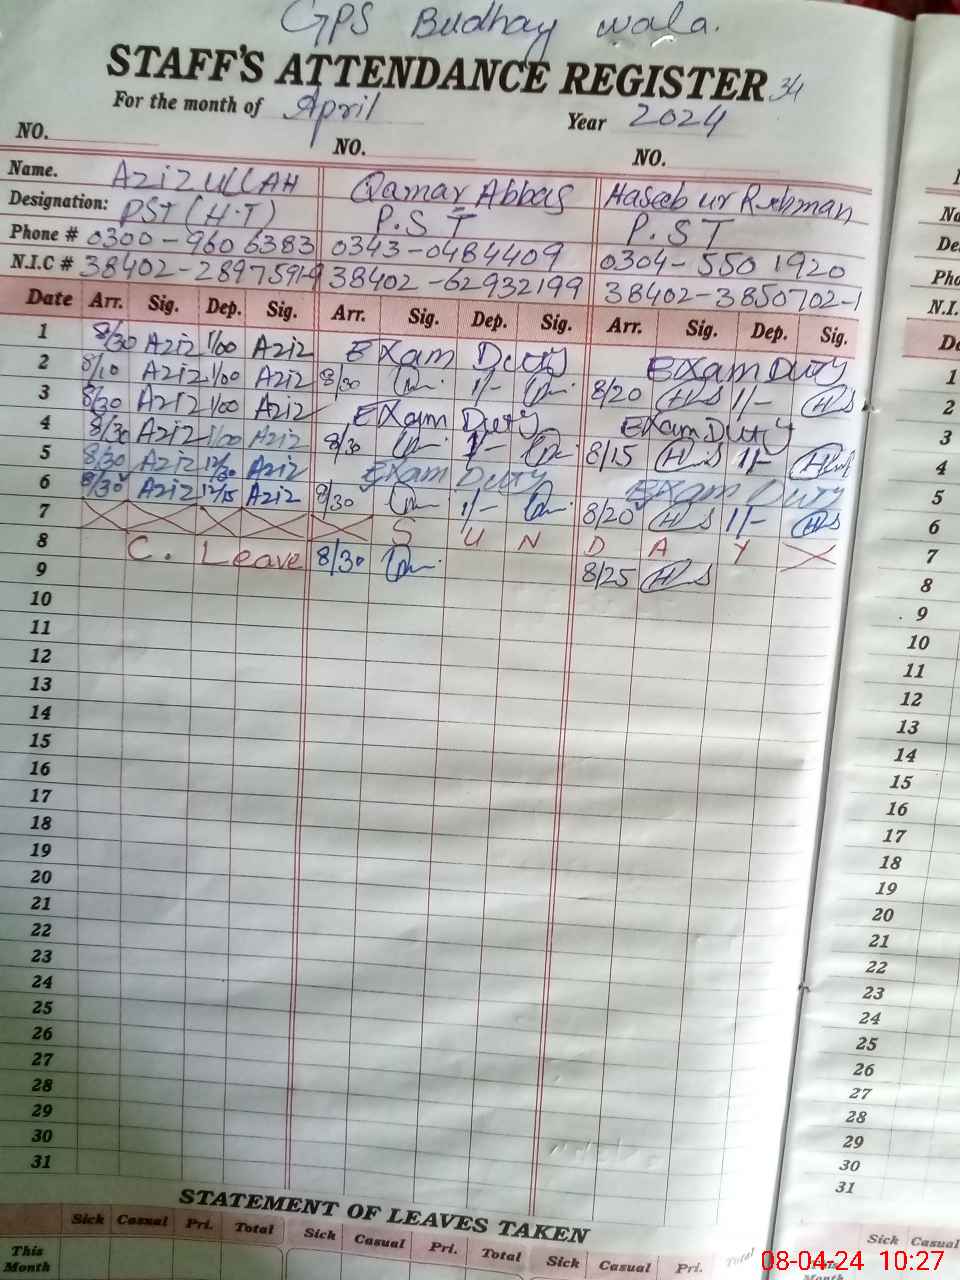 GPS Budhay wala.
STAFF'S ATTENDANCE REGISTER 34
For the month of April Year 2024
NO. NO. NO.
Name. AZIZ ULLAH Qamar Abbas Haseeb ur Rehman
Designation: PST (H.T) P.S.T P.S T
Phone # 0300-960 6383 0343-0484409 0304-550 1920
N.I.C # 38402-2897591-9 38402-62932199 38402-3850702-1
Date Arr. Sig. Dep. Sig. Arr. Sig. Dep. Sig. Arr. Sig. Dep. Sig.
1 8/30 Aziz 1/00 Aziz Exam Duty Exam Duty
2 8/10 Aziz 1/00 Aziz 8/30 1/- 8/20 1/-
3 8/30 Aziz 1/00 Aziz Exam Duty Exam Duty
4 8/30 Aziz 1/00 Aziz 8/30 1/- 8/15 1/-
5 8/30 Aziz 12/30 Aziz Exam Duty Exam Duty
6 8/30 Aziz 12/15 Aziz 8/30 1/- 8/20 1/-
7 S U N D A Y
8 C. Leave 8/30 8/25
9
10
11
12
13
14
15
16
17
18
19
20
21
22
23
24
25
26
27
28
29
30
31
STATEMENT OF LEAVES TAKEN
Sick Casual Pri. Total Sick Casual Pri. Total Sick Casual Pri. Total
This Month
1
2
3
4
5
6
7
8
9
10
11
12
13
14
15
16
17
18
19
20
21
22
23
24
25
26
27
28
29
30
31
Sick Casual
08-04-24 10:27